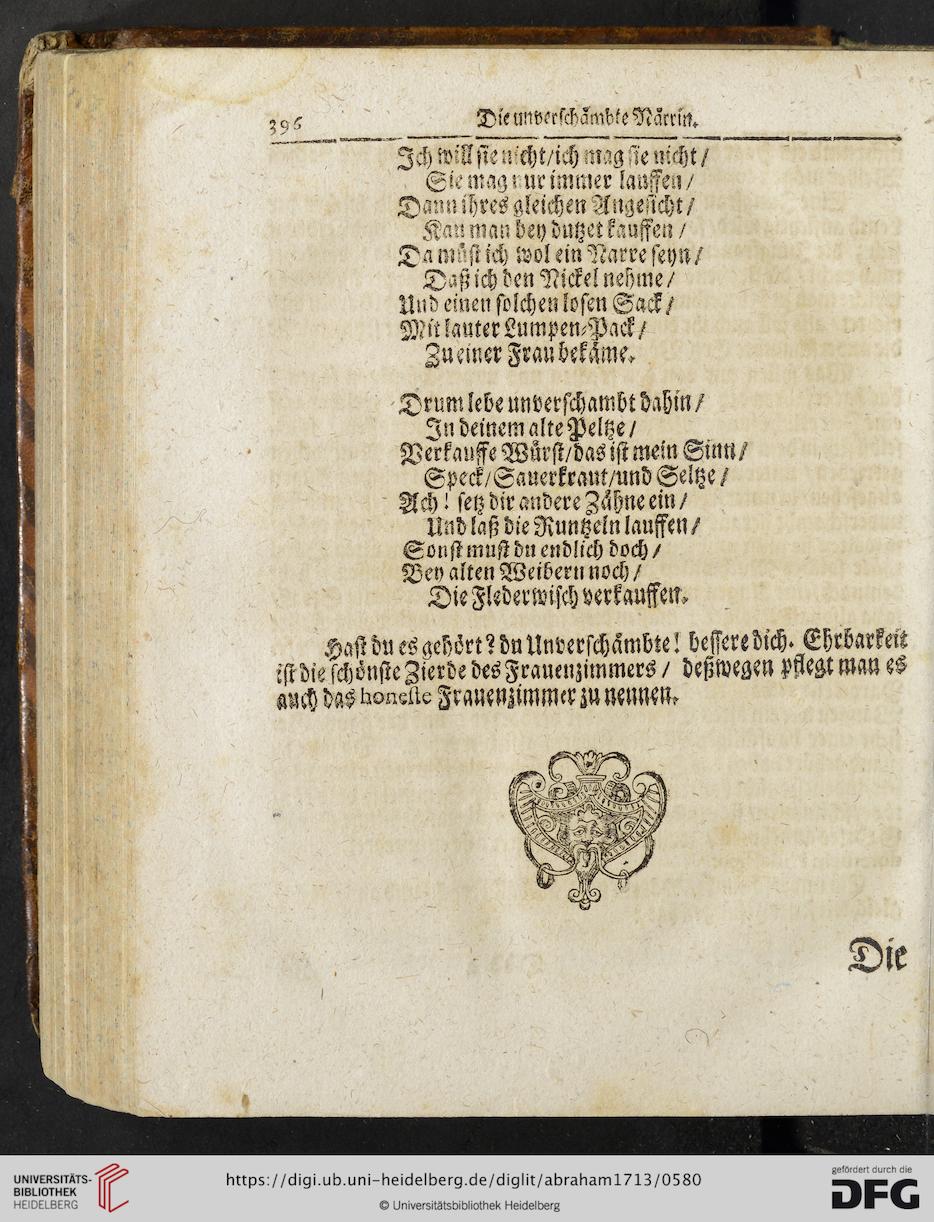 396
Die unverschåmbte Nårrin.
Ich will sie nicht/ich mag sie nicht/
Sie mag nur immer lauffen/
Dann ihres gleichen Angesicht/
Kan man bey dutzet kauffen/
Da müst ich wol ein Narre seyn/
Daß ich den Nickel nehme/
Und einen solchen losen Sack/
Mit lauter Lumpen-Pack/
Zu einer Frau bekåme.
Drum lebe unverschambt dahin/
In deinem alte Peltze/
Verkauffe Würst/das ist mein Sinn/
Speck/Sauerkraut/und Seltze/
Ach! setz dir andere Zåhne ein/
Und laß die Runtzeln lauffen/
Sonst must du endlich doch/
Bey alten Weibern noch/
Die Flederwisch verkauffen.
Hast du es gehört? du Unverschåmbte! bessere dich. Ehrbarkeit
ist die schönste Zierde des Frauenzimmers/ deßwegen pflegt man es
auch das honeste Frauenzimmer zu nennen.
Die
UNIVERSITÄTS-
BIBLIOTHEK
HEIDELBERG
https://digi.ub.uni-heidelberg.de/diglit/abraham1713/0580
© Universitätsbibliothek Heidelberg
gefördert durch die
DFG